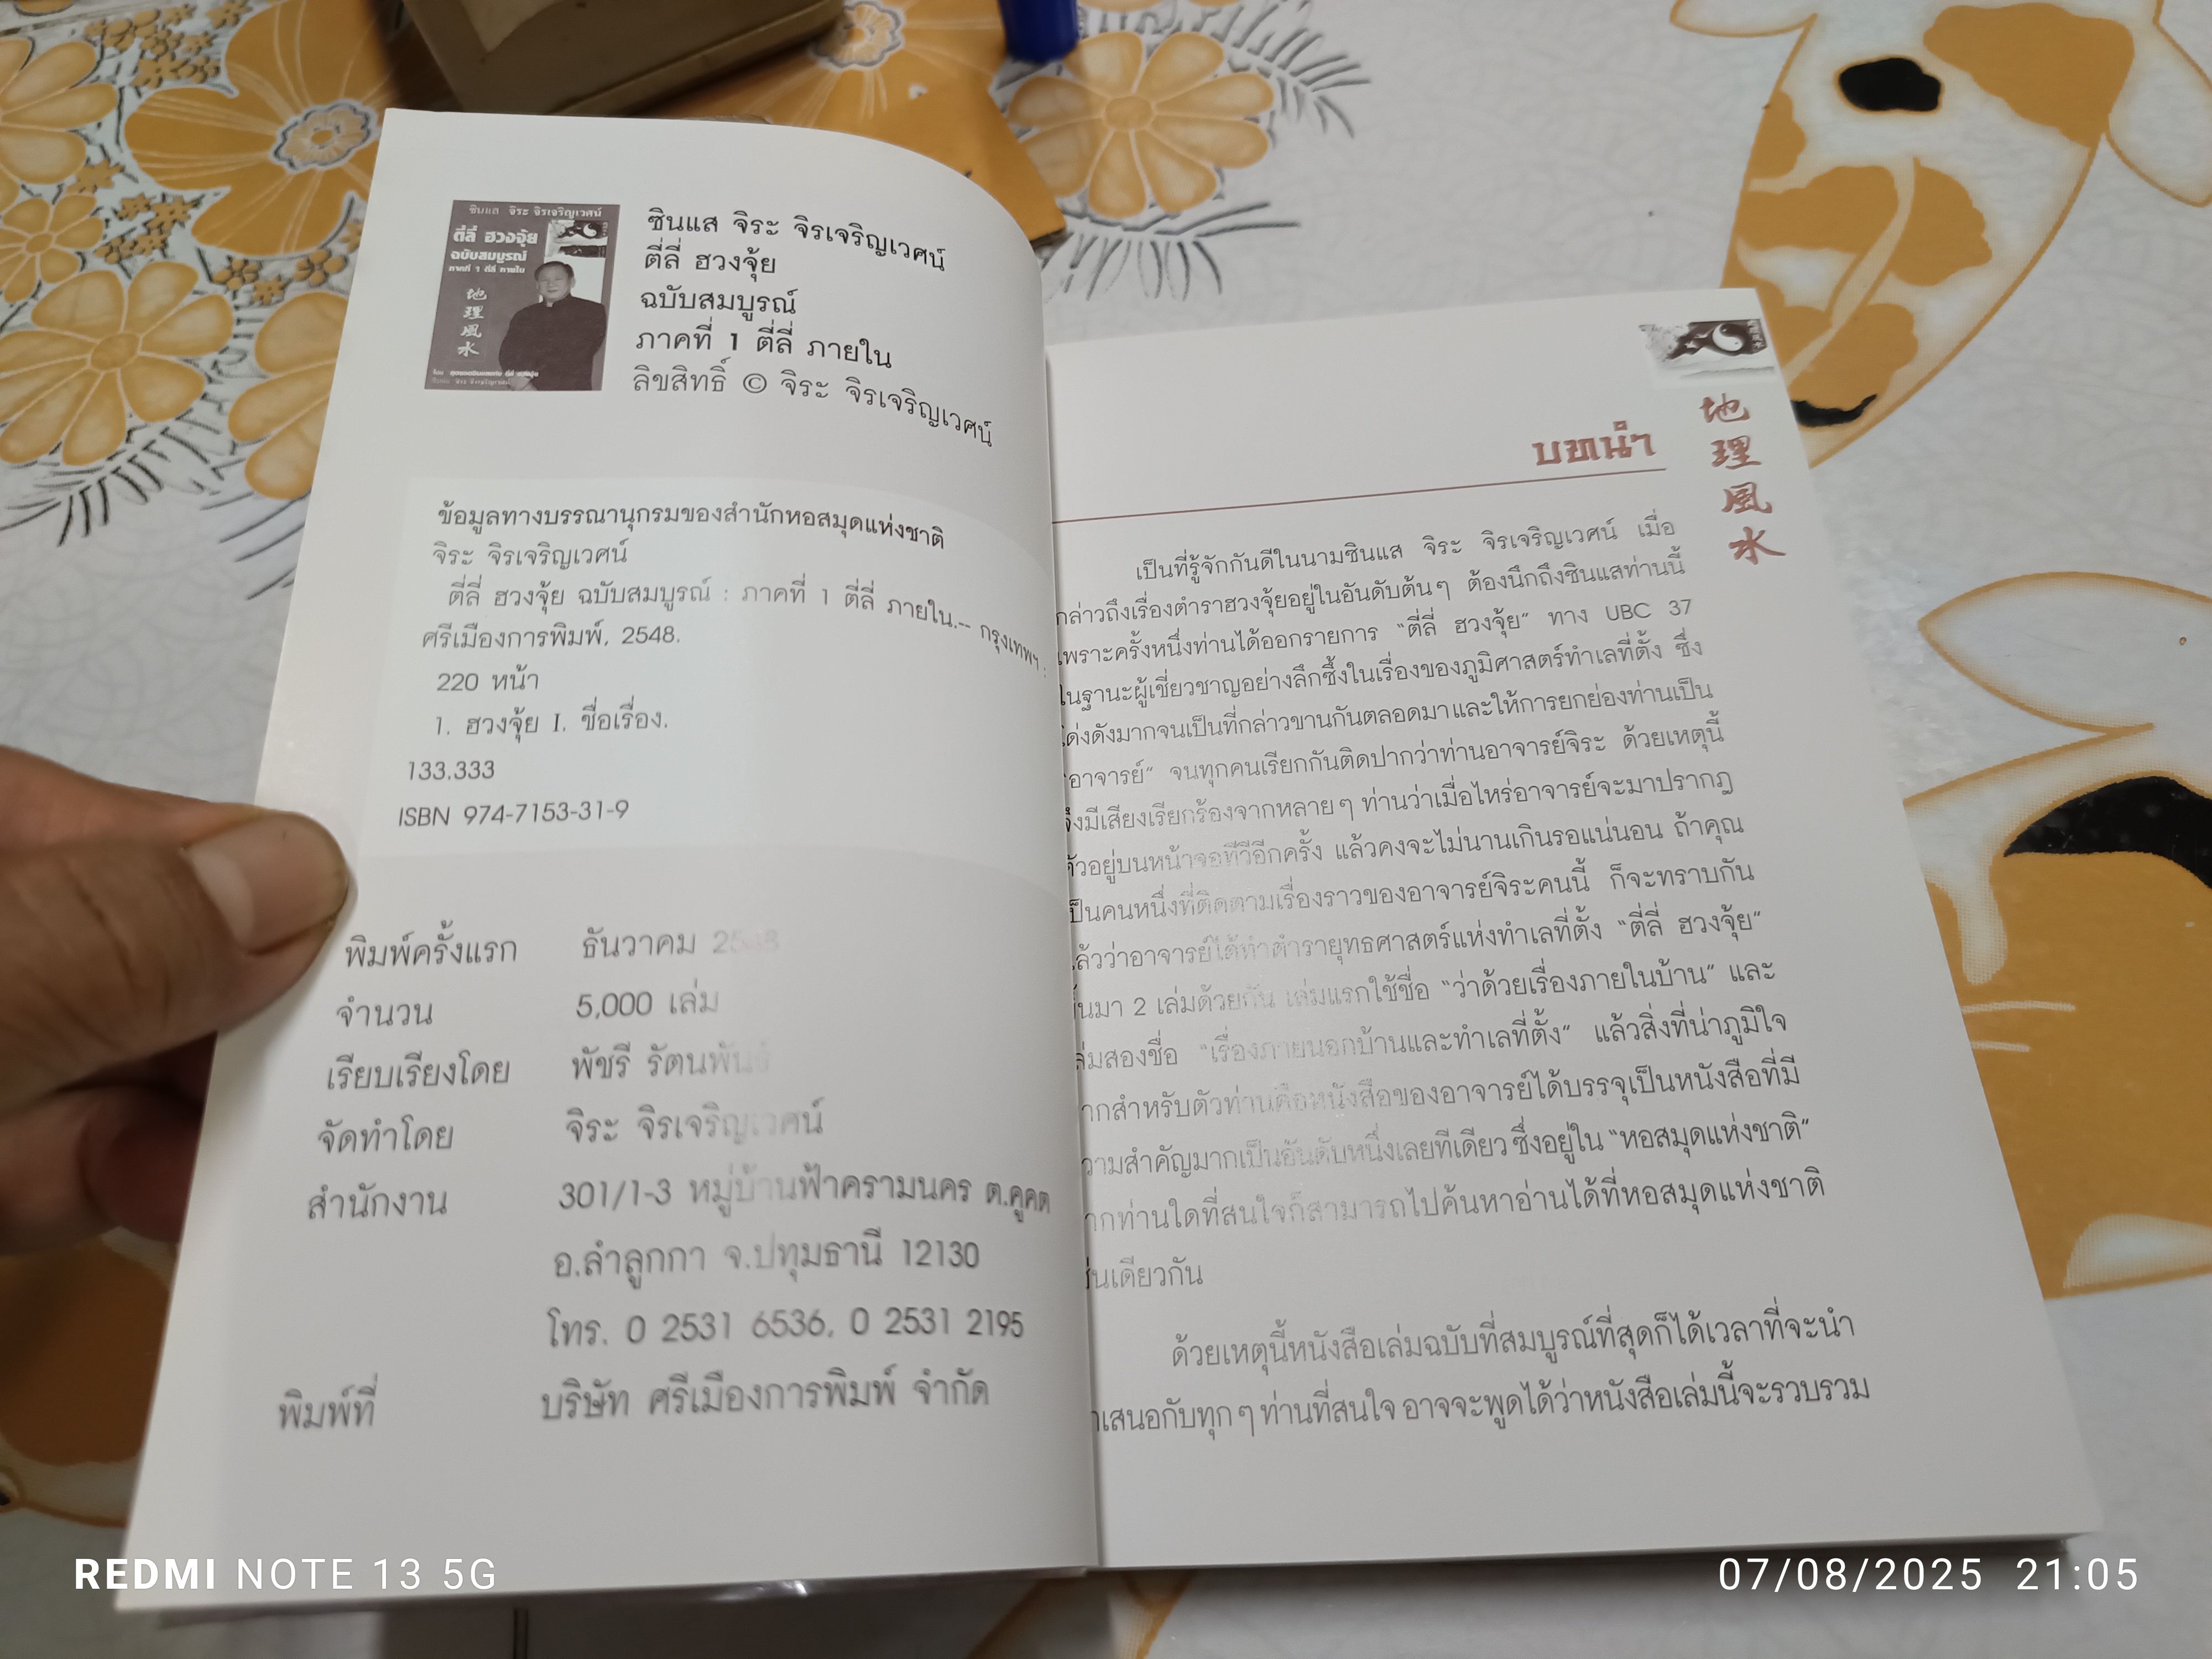 ซินแส จิระ จิรเจริญเวศน์
ตี่ลี่ ฮวงจุ้ย
ฉบับสมบูรณ์
ภาคที่ 1 ตี่ลี่ ภายใน
地
理
風
水
ซินแส จิระ จิรเจริญเวศน์
ตี่ลี่ ฮวงจุ้ย
ฉบับสมบูรณ์
ภาคที่ 1 ตี่ลี่ ภายใน
ลิขสิทธิ์ © จิระ จิรเจริญเวศน์
ข้อมูลทางบรรณานุกรมของสำนักหอสมุดแห่งชาติ
จิระ จิรเจริญเวศน์
ตี่ลี่ ฮวงจุ้ย ฉบับสมบูรณ์ : ภาคที่ 1 ตี่ลี่ ภายใน.-- กรุงเทพฯ :
ศรีเมืองการพิมพ์, 2548.
220 หน้า
1. ฮวงจุ้ย I. ชื่อเรื่อง.
133.333
ISBN 974-7153-31-9
พิมพ์ครั้งแรก ธันวาคม 2548
จำนวน 5,000 เล่ม
เรียบเรียงโดย พัชรี รัตนพันธ์
จัดทำโดย จิระ จิรเจริญเวศน์
สำนักงาน 301/1-3 หมู่บ้านฟ้าครามนคร ต.คูคต
อ.ลำลูกกา จ.ปทุมธานี 12130
โทร. 0 2531 6536, 0 2531 2195
พิมพ์ที่ บริษัท ศรีเมืองการพิมพ์ จำกัด
地
理
風
水
บทนำ
เป็นที่รู้จักกันดีในนามซินแส จิระ จิรเจริญเวศน์ เมื่อ
กล่าวถึงเรื่องตำราฮวงจุ้ยอยู่ในอันดับต้นๆ ต้องนึกถึงซินแสท่านนี้
เพราะครั้งหนึ่งท่านได้ออกรายการ "ตี่ลี่ ฮวงจุ้ย" ทาง UBC 37
ในฐานะผู้เชี่ยวชาญอย่างลึกซึ้งในเรื่องของภูมิศาสตร์ทำเลที่ตั้ง ซึ่ง
โด่งดังมากจนเป็นที่กล่าวขานกันตลอดมาและให้การยกย่องท่านเป็น
"อาจารย์" จนทุกคนเรียกกันติดปากว่าท่านอาจารย์จิระ ด้วยเหตุนี้
จึงมีเสียงเรียกร้องจากหลายๆ ท่านว่าเมื่อไหร่อาจารย์จะมาปรากฏ
ตัวอยู่บนหน้าจอทีวีอีกครั้ง แล้วคงจะไม่นานเกินรอแน่นอน ถ้าคุณ
เป็นคนหนึ่งที่ติดตามเรื่องราวของอาจารย์จิระคนนี้ ก็จะทราบกัน
แล้วว่าอาจารย์ได้ทำตำรายุทธศาสตร์แห่งทำเลที่ตั้ง "ตี่ลี่ ฮวงจุ้ย"
ขึ้นมา 2 เล่มด้วยกัน เล่มแรกใช้ชื่อ "ว่าด้วยเรื่องภายในบ้าน" และ
เล่มสองชื่อ "เรื่องภายนอกบ้านและทำเลที่ตั้ง" แล้วสิ่งที่น่าภูมิใจ
มากสำหรับตัวท่านคือหนังสือของอาจารย์ได้บรรจุเป็นหนังสือที่มี
ความสำคัญมากเป็นอันดับหนึ่งเลยทีเดียว ซึ่งอยู่ใน "หอสมุดแห่งชาติ"
หากท่านใดที่สนใจก็สามารถไปค้นหาอ่านได้ที่หอสมุดแห่งชาติ
เช่นเดียวกัน
ด้วยเหตุนี้หนังสือเล่มฉบับที่สมบูรณ์ที่สุดก็ได้เวลาที่จะนำ
มาเสนอกับทุกๆ ท่านที่สนใจ อาจจะพูดได้ว่าหนังสือเล่มนี้จะรวบรวม
REDMI NOTE 13 5G
07/08/2025 21:05